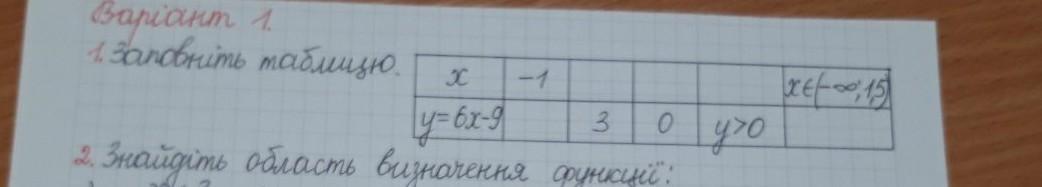 Варіант 1.
1. Заповніть таблицю.
x -1 x∈(-∞; 1,5)
y=6x-9 3 0 y>0
2. Знайдіть область визначення функції: